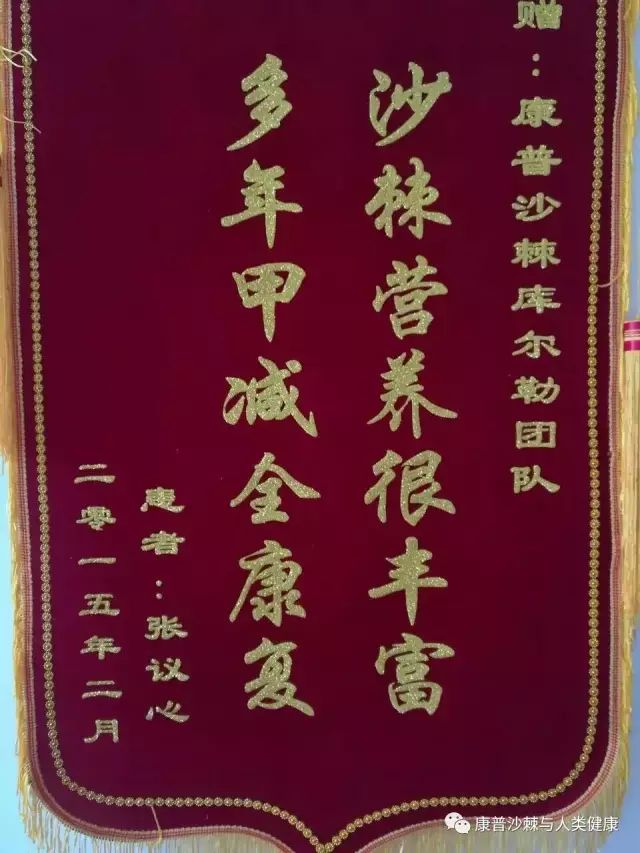 赠：康普沙棘库尔勒团队
沙棘营养很丰富
多年甲减全康复
患者：张议心
二零一五年二月
康普沙棘与人类健康